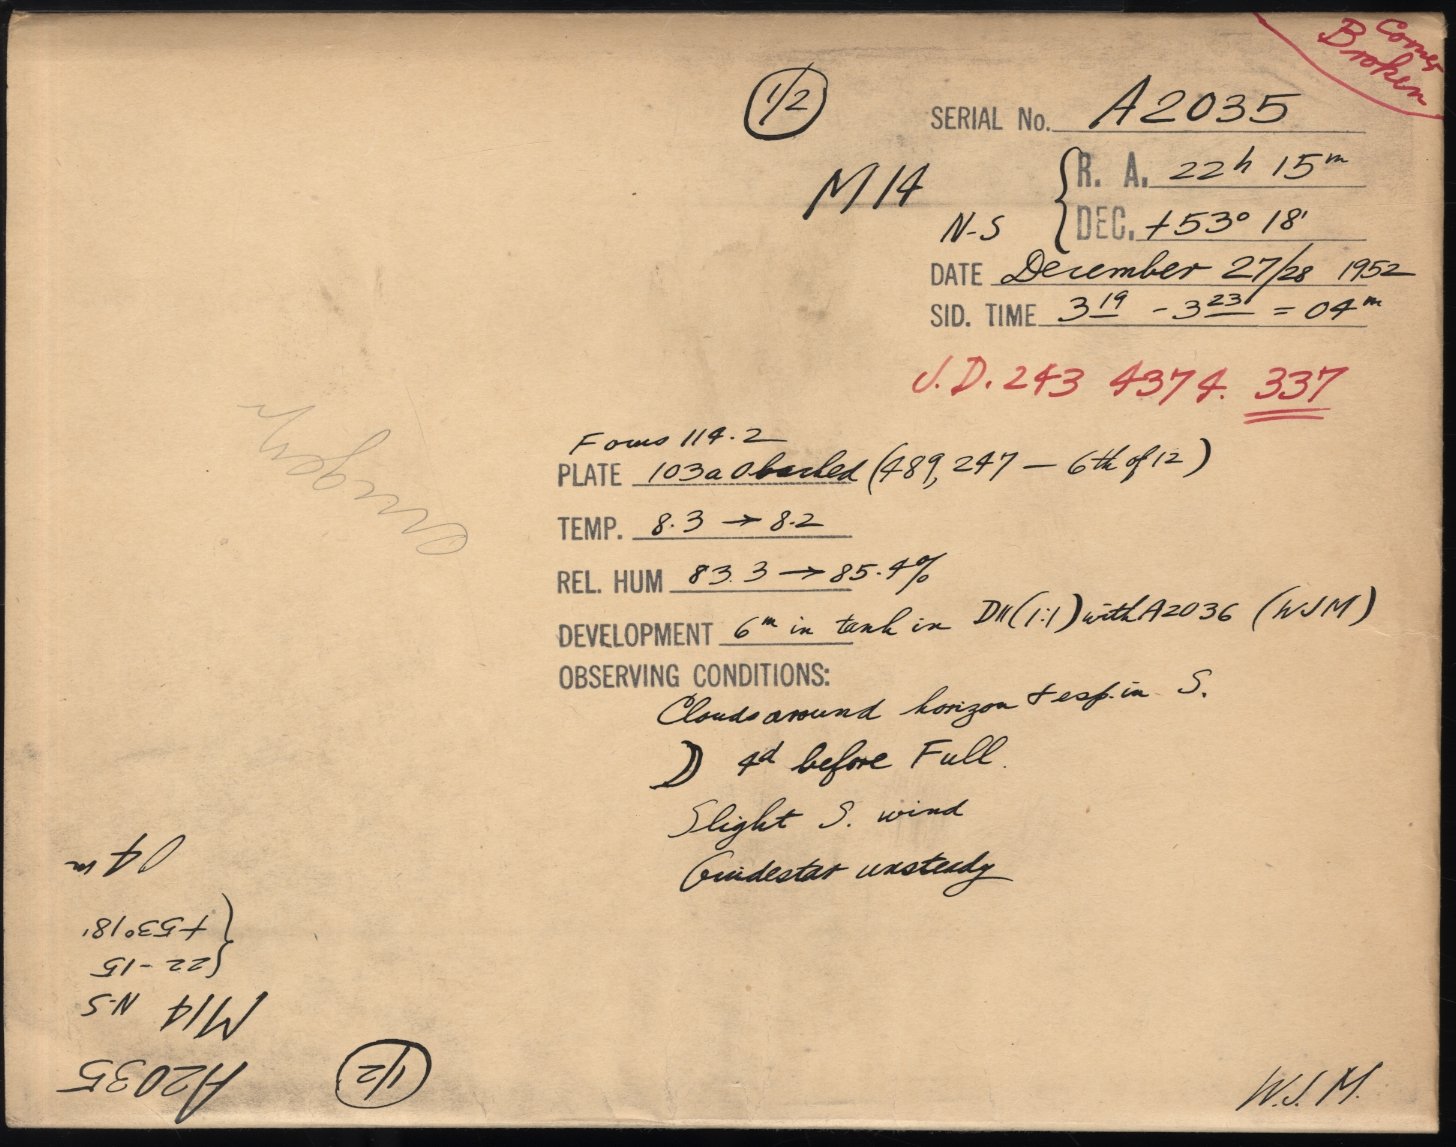 Corner
Broken
1/2
SERIAL No. A2035
M14
R. A. 22h 15m
N-S
DEC. +53° 18'
DATE December 27/28 1952
SID. TIME 3 19 - 3 23 = 04m
J.D. 243 4374. 337
Focus 114.2
PLATE 103a O backed (489, 247 — 6th of 12)
TEMP. 8.3 → 8.2
REL. HUM 83.3 → 85.4%
DEVELOPMENT 6m in tank in D11 (1:1) with A2036 (WJM)
OBSERVING CONDITIONS:
Clouds around horizon & esp. in S.
4d before Full.
Slight S. wind
Guidestar unsteady
W.J.M.
1/2
A2035
M14 N-S
22-15
+53°18'
04m